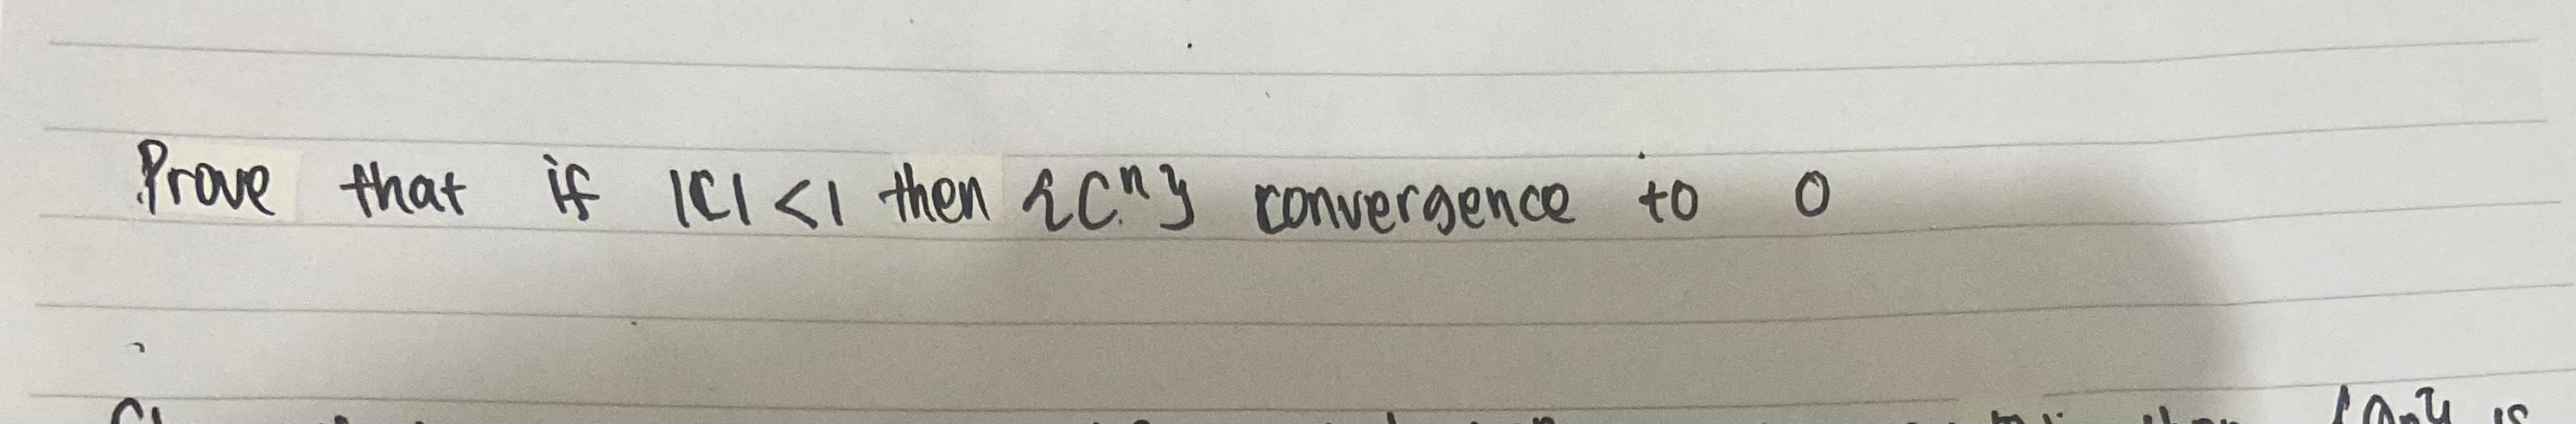 Prove that if |C| < 1 then {Cⁿ} convergence to 0